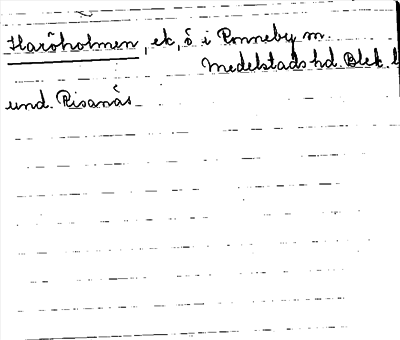 Haröholmen, ek, ö i Ronneby m.
Medelstads hd. Blek. l
und. Risanäs